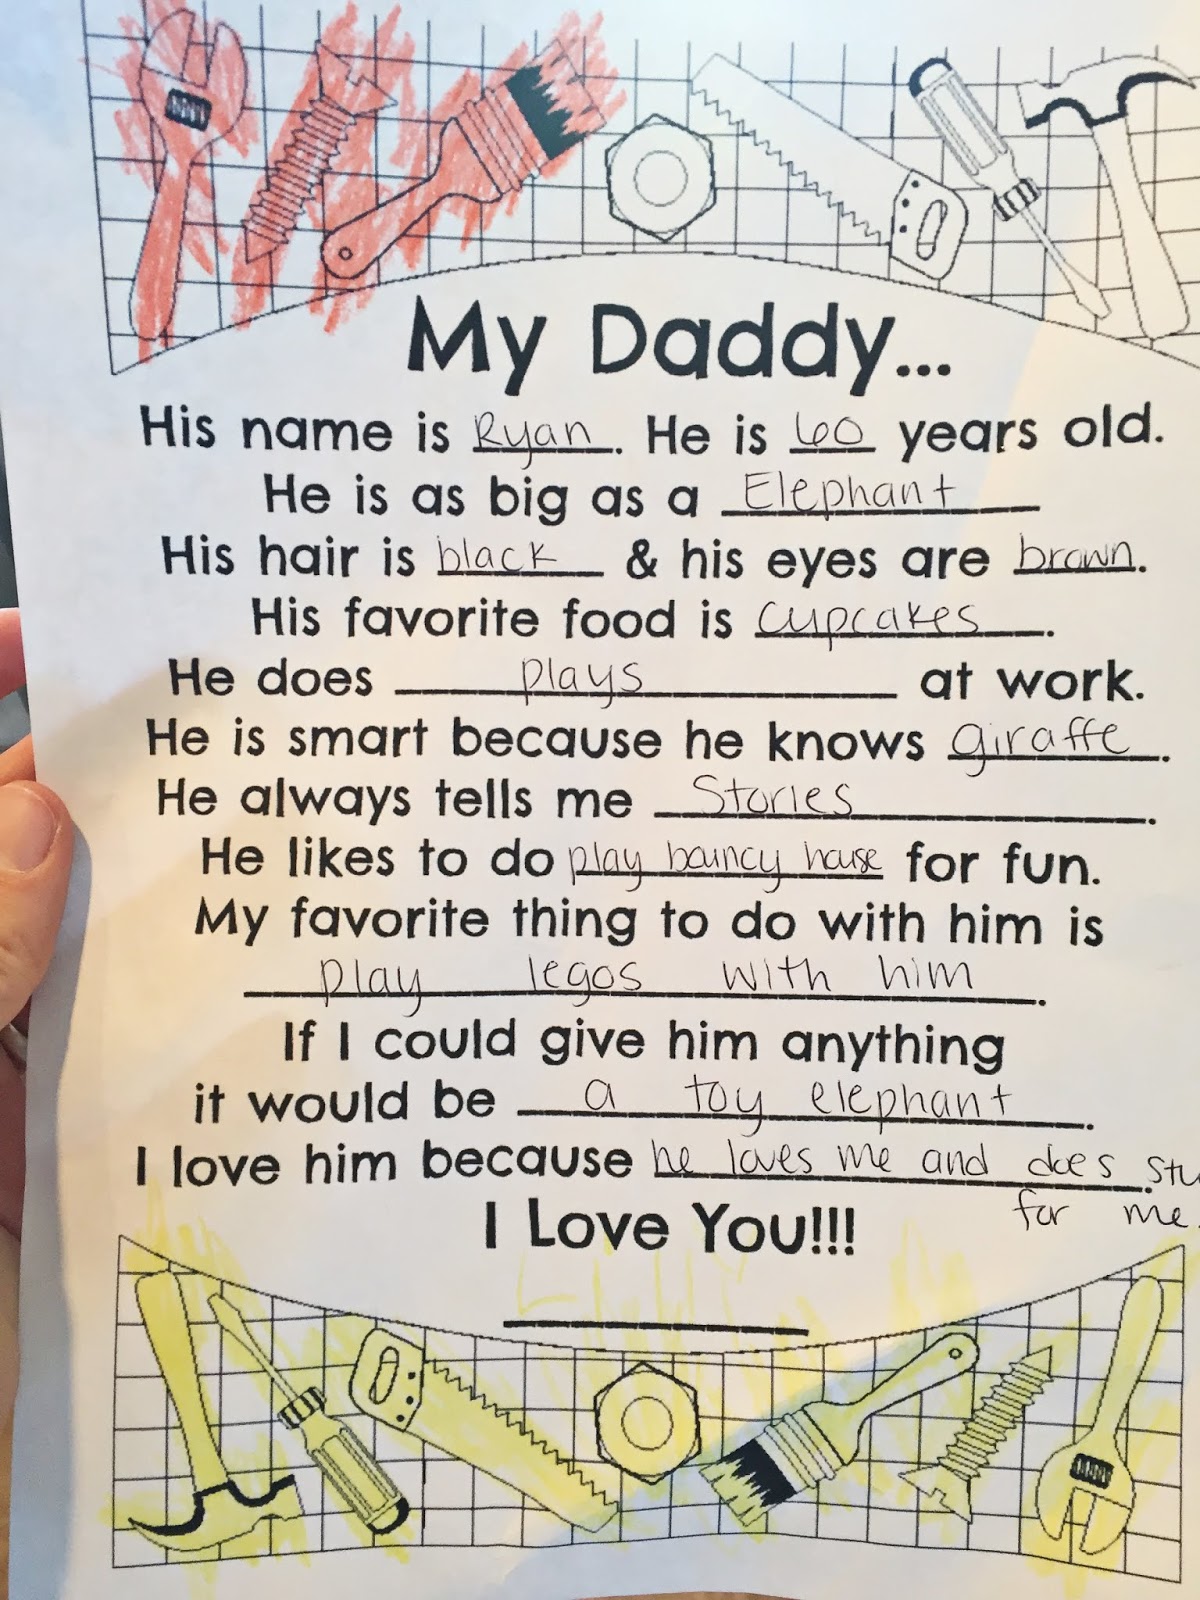 My Daddy...
His name is Ryan. He is 60 years old.
He is as big as a Elephant
His hair is black & his eyes are brown.
His favorite food is cupcakes.
He does plays at work.
He is smart because he knows giraffe.
He always tells me Stories.
He likes to do play bouncy house for fun.
My favorite thing to do with him is
play legos with him.
If I could give him anything
it would be a toy elephant.
I love him because he loves me and does
for me.
I Love You!!!